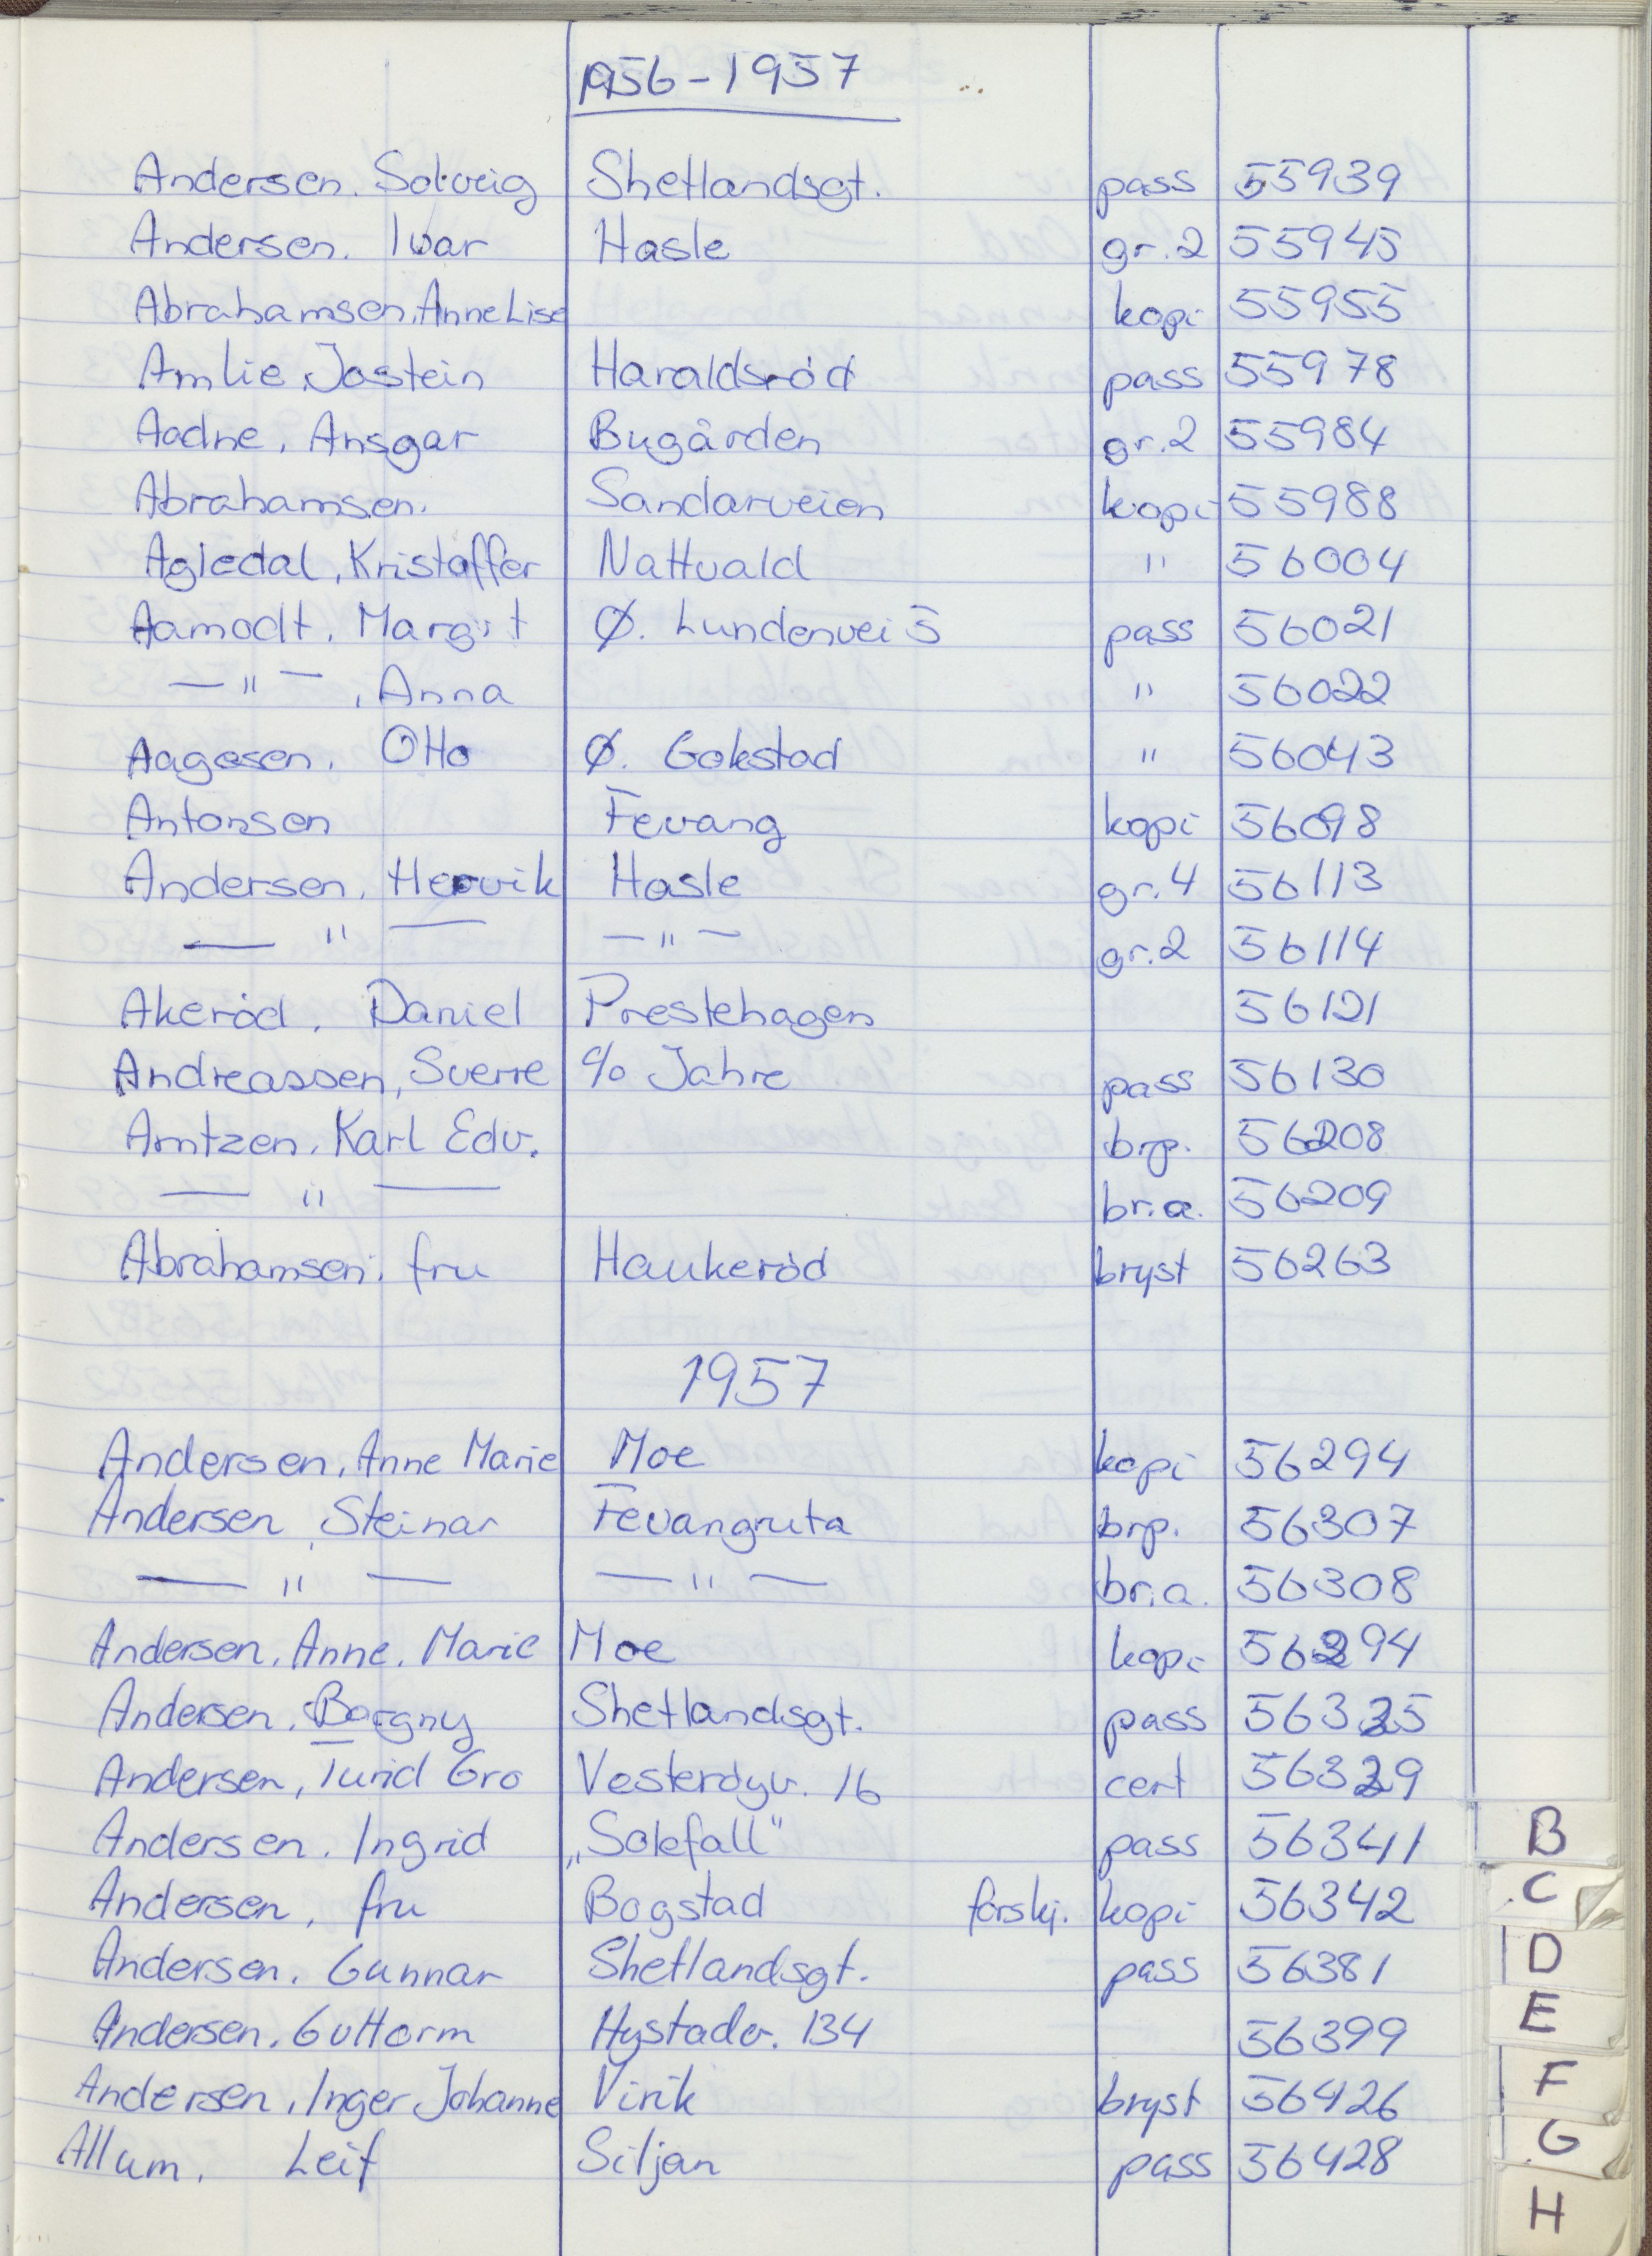 1956-1957
Andersen. Solveig Shetlandsgt. pass 55939
Andersen. Ivar Hasle gr.2 55945
Abrahamsen, Anne Lise kopi 55955
Amlie, Jostein Haraldsród pass 55978
Aadne, Ansgar Bugården gr.2 55984
Abrahamsen. Sandarveien kopi 55988
Agledal, Kristoffer Nattvald " 56004
Aamodt, Margit Ø. Lundenvei 5 pass 56021
— " — , Anna " 56022
Aagesen, Otto Ø. Gokstad " 56043
Antonsen Fevang kopi 56098
Andersen, Hervik Hasle gr.4 56113
— " — — " — gr.2 56114
Akeród, Daniel Prestehagen 56121
Andreassen, Sverre c/o Jahre pass 56130
Arntzen, Karl Edv. brp. 56208
— " — br.a. 56209
Abrahamsen, fru Haukeród bryst 56263
1957
Andersen, Anne Marie Moe kopi 56294
Andersen, Steinar Fevangruta brp. 56307
— " — — " — br.a. 56308
Andersen, Anne. Marie Moe kopi 56294
Andersen, Borgny Shetlandsgt. pass 56325
Andersen, Turid Gro Vesterøyv. 16 cert 56329
Andersen, Ingrid „Solefall" pass 56341
Andersen, fru Bogstad forskj. kopi 56342
Andersen, Gunnar Shetlandsgt. pass 56381
Andersen, Guttorm Hystadv. 134 56399
Andersen, Inger Johanne Virik bryst 56426
Allum, Leif Siljan pass 56428
B
C
D
E
F
G
H